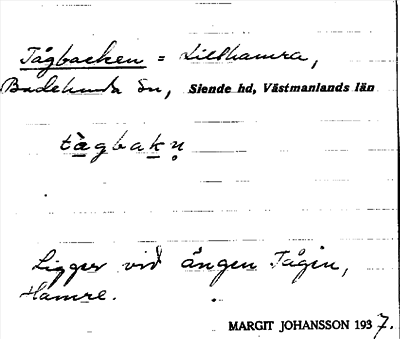 Tågbacken = Lillhamra,
Badelunda sn, Siende hd, Västmanlands län
tà̱gbaḵn̥
Ligger vid ängen Tågin,
Hamre.
MARGIT JOHANSSON 1937.